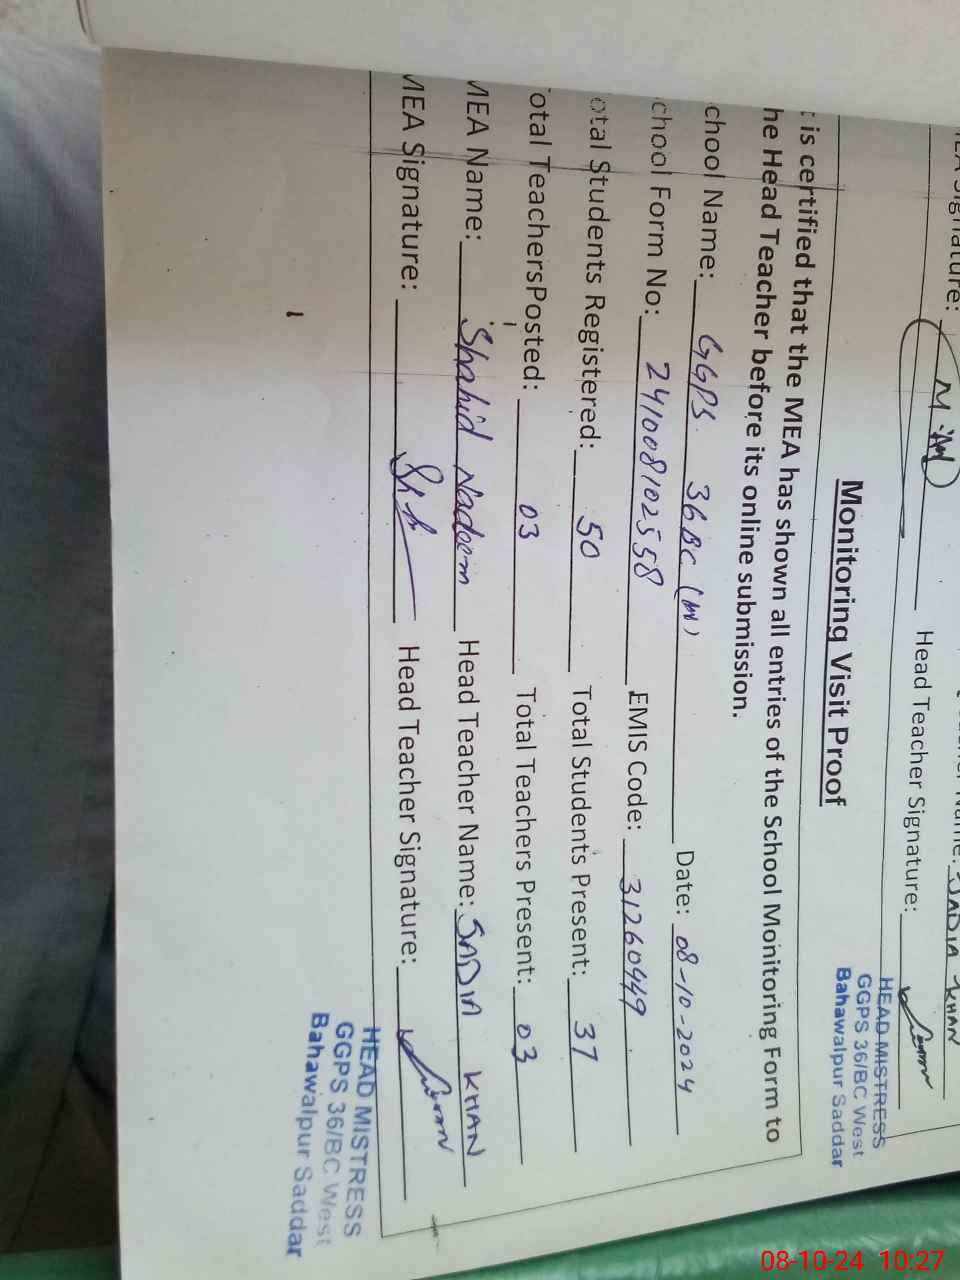 Signature: M.M Head Teacher Signature:
SADIA KHAN
HEAD MISTRESS
GGPS 36/BC West
Bahawalpur Saddar
Monitoring Visit Proof
t is certified that the MEA has shown all entries of the School Monitoring Form to
he Head Teacher before its online submission.
chool Name: GGPS 36BC (W) Date: 08-10-2024
chool Form No: 241008102558 EMIS Code: 31260449
otal Students Registered: 50 Total Students Present: 37
otal TeachersPosted: 03 Total Teachers Present: 03
MEA Name: Shahid Nadeem Head Teacher Name: SADIA KHAN
MEA Signature: Head Teacher Signature:
HEAD MISTRESS
GGPS 36/BC West
Bahawalpur Saddar
08-10-24 10:27